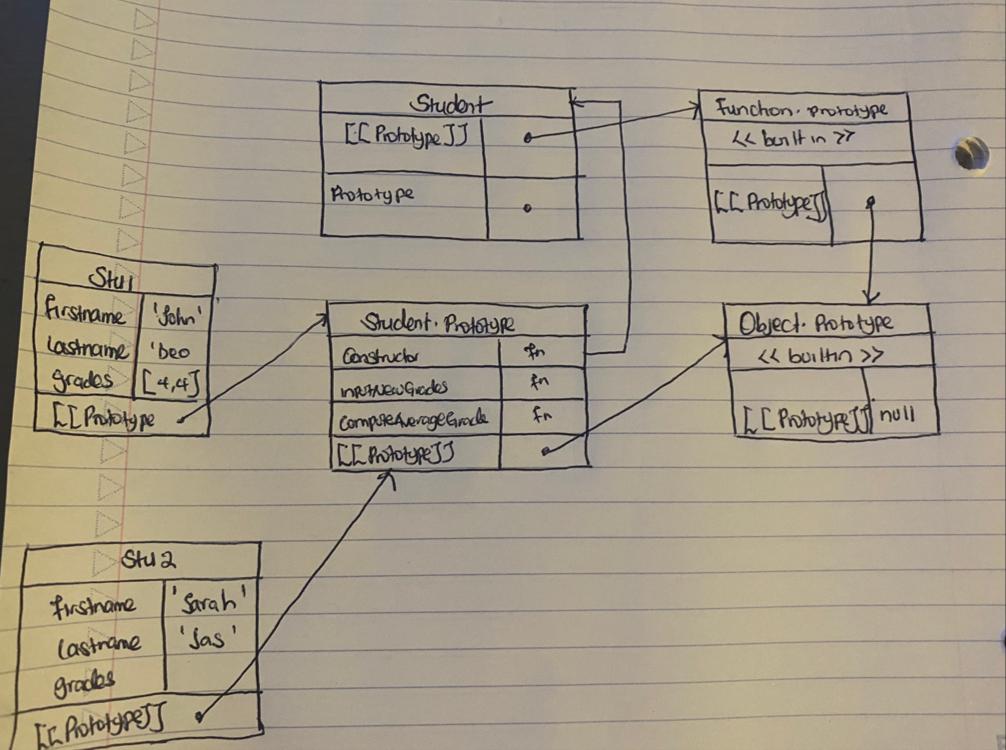 Student
[[Prototype]]
Prototype
Function.prototype
<< built in >>
[[Prototype]]
Stu1
firstname 'John'
lastname 'Deo
grades [4,4]
[[Prototype
Student.Prototype
Constructor fn
inputNewGrades fn
computeAverageGrade fn
[[Prototype]]
Object.Prototype
<< builtin >>
[[Prototype]] null
Stu 2
firstname 'Sarah'
lastname 'Jas'
grades
[[Prototype]]